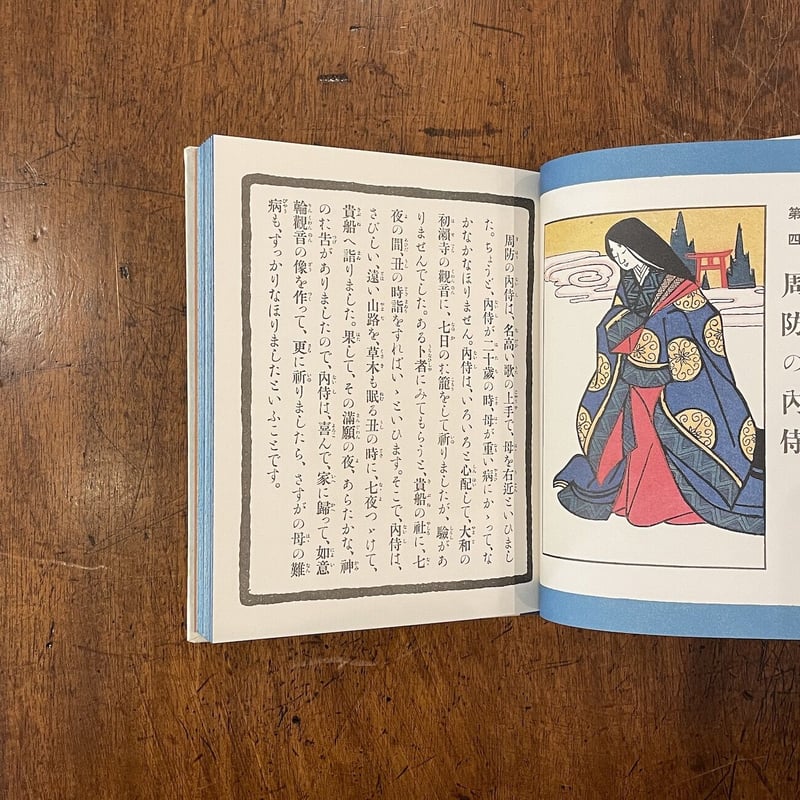 第四
周防の內侍
周防の內侍は、名高い歌の上手で、母を右近といひまし
た。ちようど、內侍が二十歲の時、母が重い病にかゝつて、な
かなかなほりません。內侍は、いろいろと心配して、大和の
初瀨寺の觀音に、七日のお籠をして祈りましたが、驗があ
りませんでした。ある卜者にみてもらうと、貴船の社に、七
夜の間、丑の時詣をすればいゝといひます。そこで、內侍は、
さびしい、遠い山路を、草木も眠る丑の時に、七夜つゞけて、
貴船へ詣りました。果して、その滿願の夜、あらたかな、神
のお吿がありましたので、內侍は、喜んで、家に歸って、如意
輪觀音の像を作って、更に祈りましたら、さすがの母の難
病も、すつかりなほりましたといふことです。